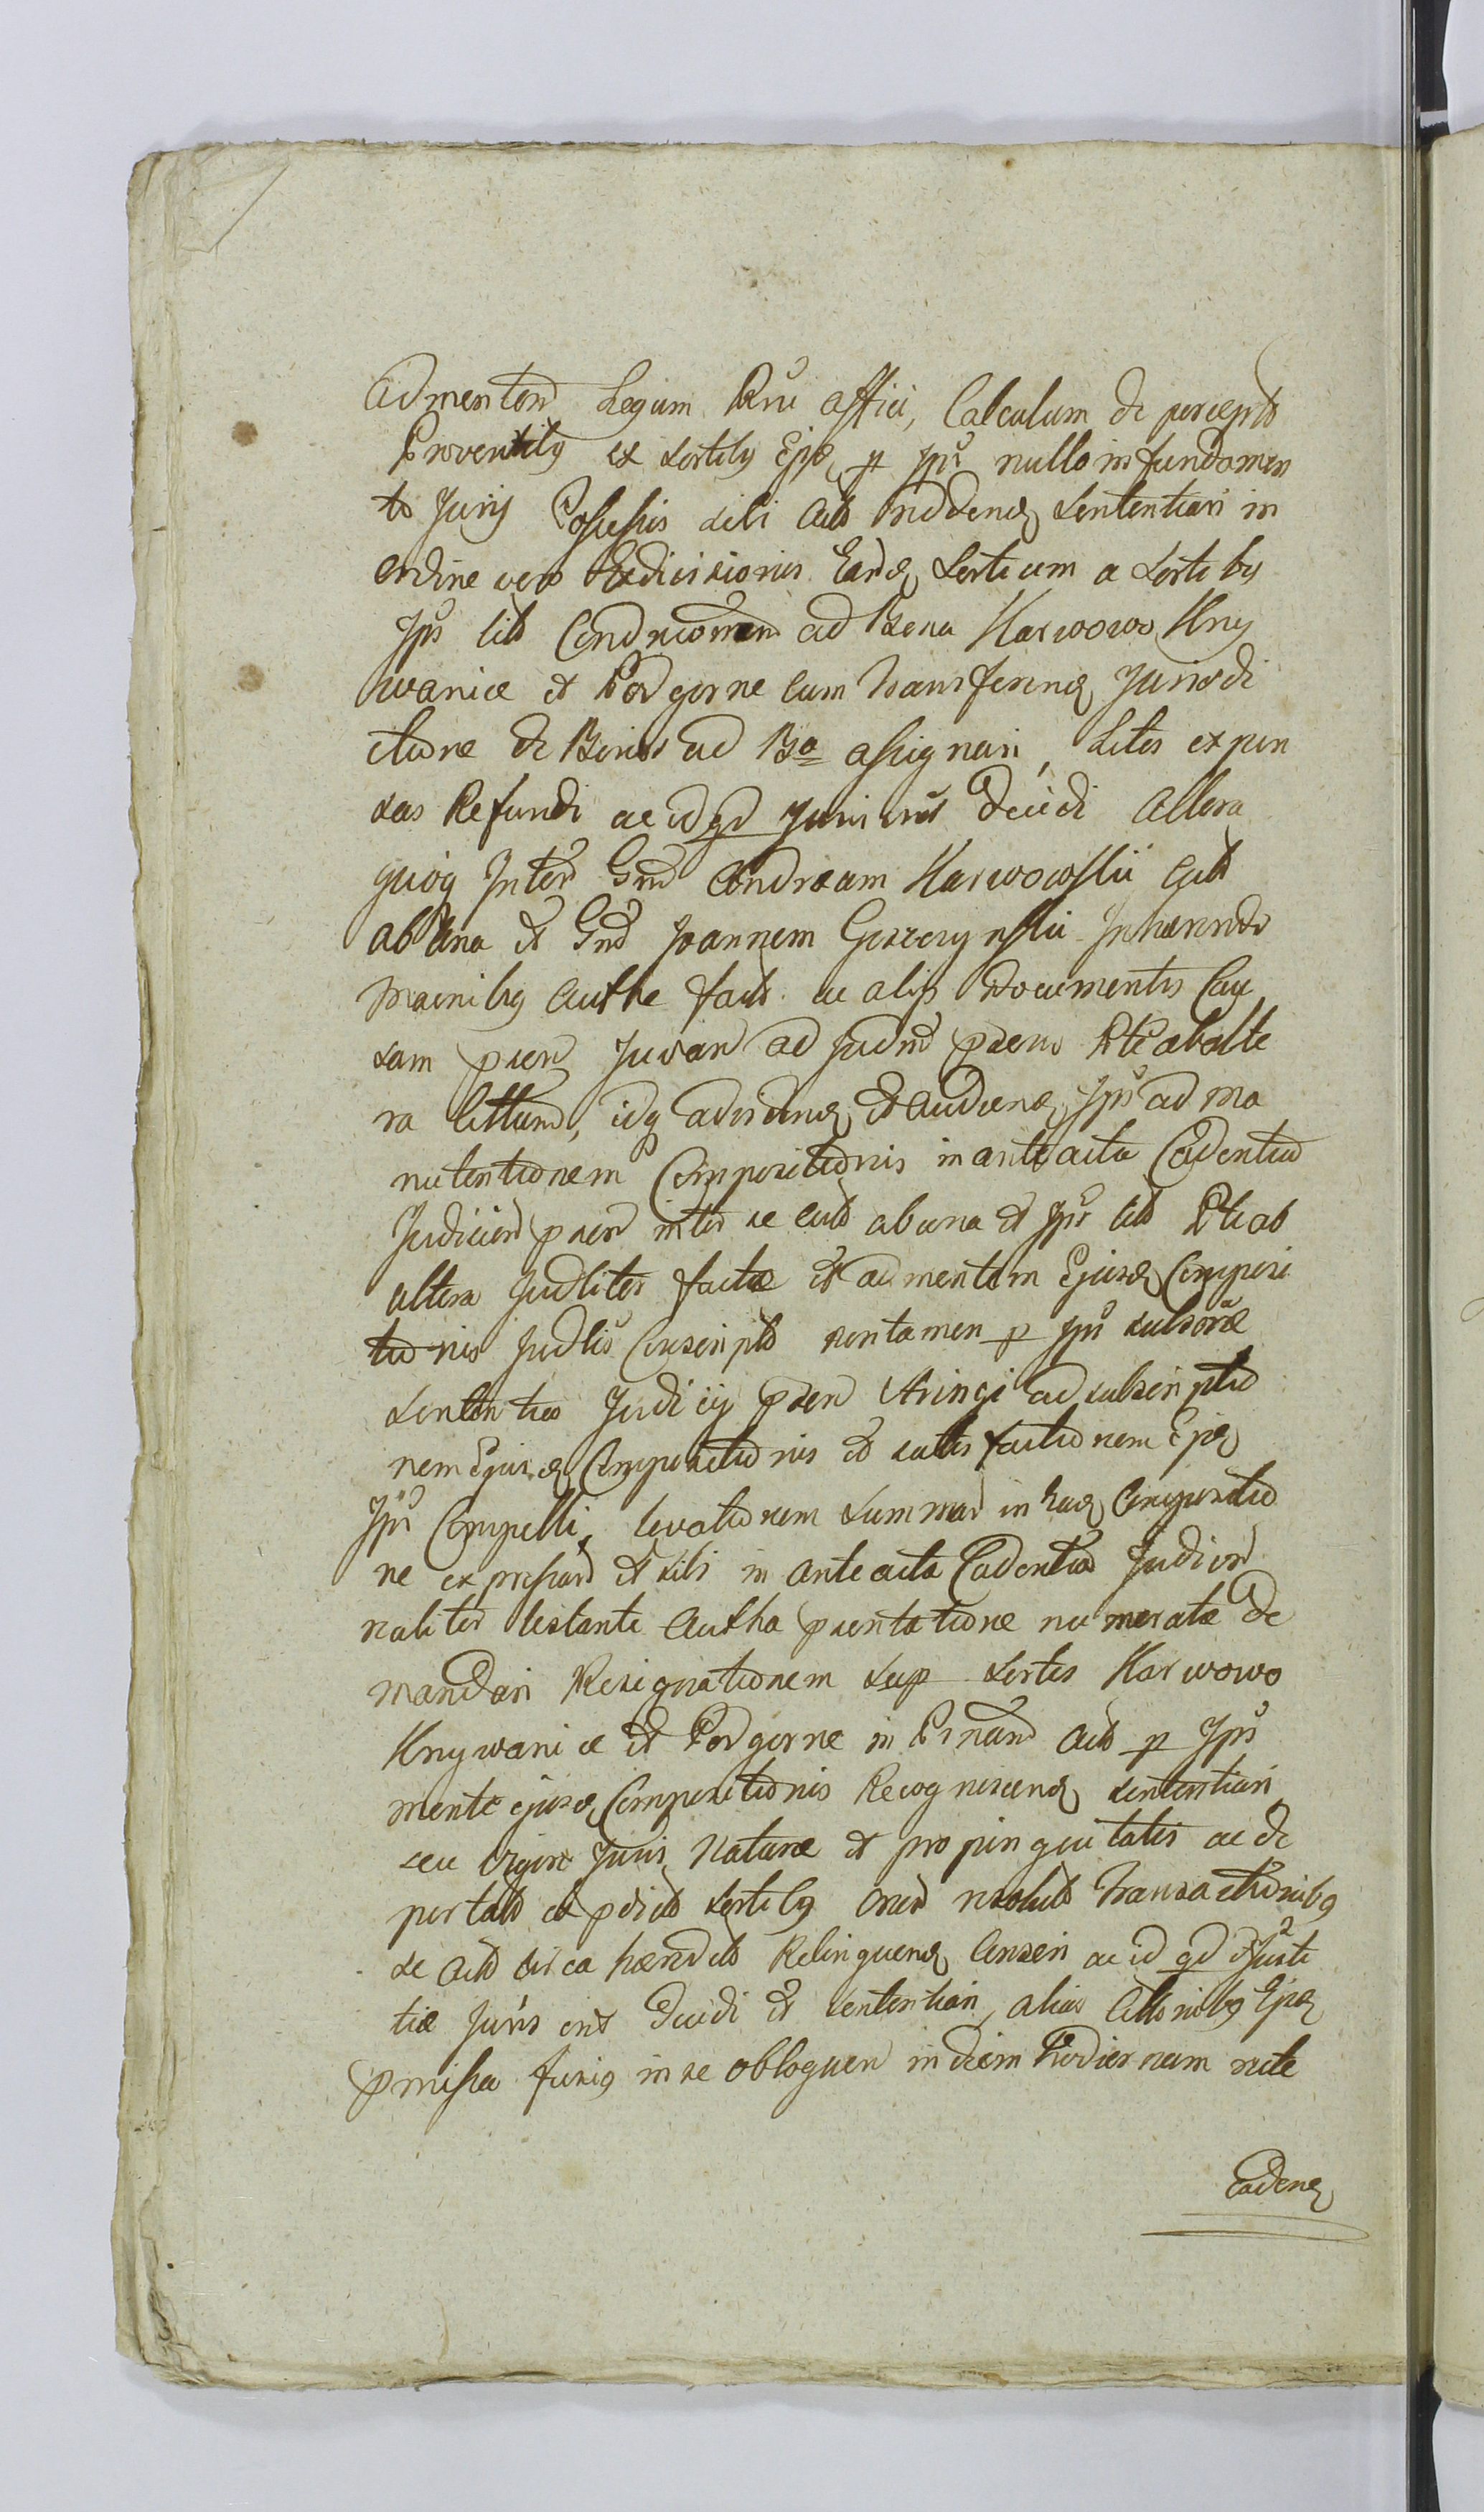 ad mentem Legum Rni affici, Calculum de percept
Proventibq ex Sortibq Ejsd p Ips nullo in fundamen
to Juris Possessis sibi Act reddend Sententiari in
ordine vero Exdivisionis Eard Sortium a Sorti bq
Ips Cit ad Bona Karwowo Kny
wanice et Podgorne cum transferend Jurisdi
ctione de Bonis ad Ba assignari, Lites expen
sas Refundi ac id qd Juris erit decidi Altera
quoq Inter Gnd Andream Karwowskii Act
ab Una et Gnd Joannem Gorczynskii Inhaerendo
Munibq Authe fact ac aliis Documentis Cau
sam pnen Juvan ad Judm pnens Pte ab alte
ra Cittum, idq ad videnq et audienq Ips ad ma
nutentionem Compositionis in ante acta Cadentia
Judicior pnen inter se Act ab una et Ips Cit Pte ab
altera Judliter factae et ad mentem Ejusd Composi
tionis Judlis Conscript non tamen p Ips subscrae
Sententiae Judicij pnen Stringi ad subscriptio
nem Ejusd Compositionis et satis factionem Ejsd
Ips Compelli, levationem Summae in Ead Compositio
ne expressae et sibi in ante acta Cadentia Judicio
naliter testante Autha pnentatione numeratae De
mandari Resignationem sup Sortes Karwowo
Knywanice et Podgorne in Act p Ips
mente ejusd Compositionis Recognoscend Sententiari
seu vigore Juris Naturae et propinquitatis ac de
portat ex pdict Sortibq resolut transactionibq
se Act circa haered Relinquend Censeri ac id qd Justi
tiae Juris erit Decidi et Sententiari, alias Actionibq Ejsd
pmissa fusiq in se obloquen in diem hodiernam rite
Cadend